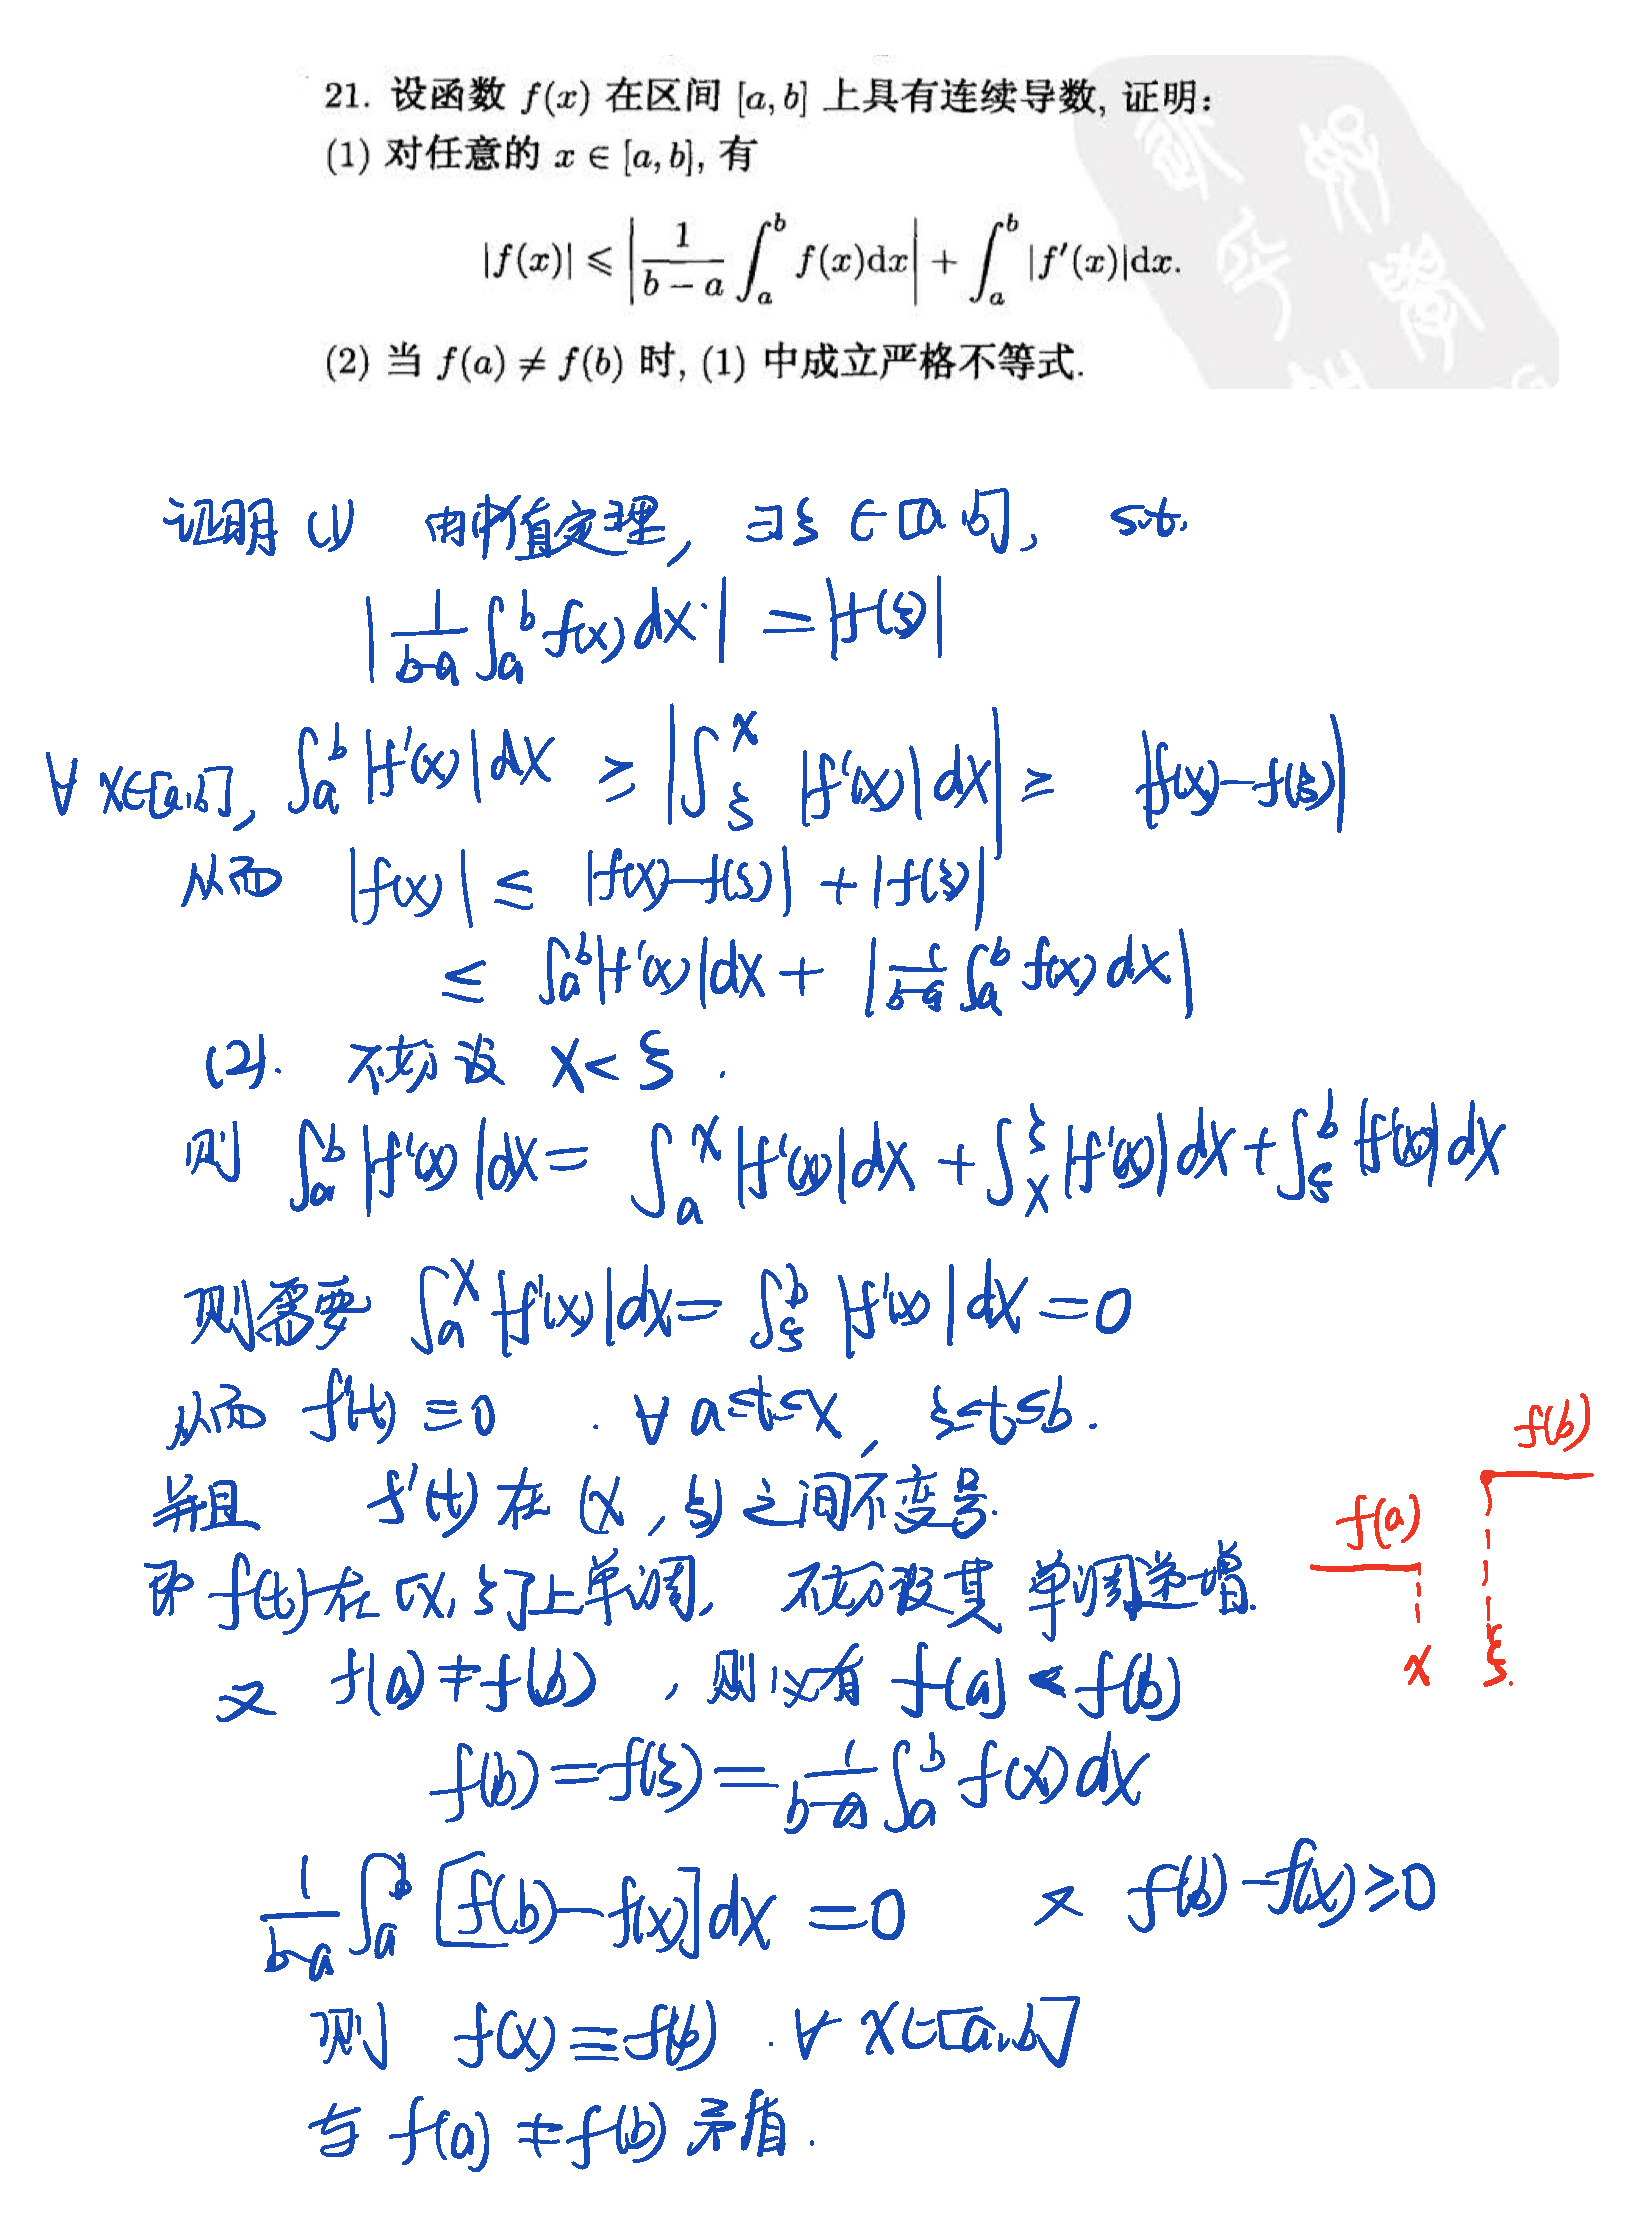 21. 设函数 f(x) 在区间 [a, b] 上具有连续导数, 证明:
(1) 对任意的 x ∈ [a, b], 有
|f(x)| ⩽ |1/(b − a) ∫_a^b f(x)dx| + ∫_a^b |f′(x)|dx.
(2) 当 f(a) ≠ f(b) 时, (1) 中成立严格不等式.
证明 (1) 由中值定理, ∃ξ ∈ [a, b], s.t.
|1/(b-a) ∫_a^b f(x) dx| = |f(ξ)|
∀ x∈[a,b], ∫_a^b |f'(x)| dx ≥ |∫_ξ^x |f'(x)| dx| ≥ |f(x)-f(ξ)|
从而 |f(x)| ≤ |f(x)-f(ξ)| + |f(ξ)|
≤ ∫_a^b |f'(x)| dx + |1/(b-a) ∫_a^b f(x) dx|
(2). 不妨设 x < ξ .
则 ∫_a^b |f'(x)| dx = ∫_a^x |f'(x)| dx + ∫_x^ξ |f'(x)| dx + ∫_ξ^b |f'(x)| dx
则需要 ∫_a^x |f'(x)| dx = ∫_ξ^b |f'(x)| dx = 0
从而 f'(t) ≡ 0 . ∀ a≤t≤x, ξ≤t≤b.
并且 f'(t) 在 (x, ξ) 之间不变号.
即 f(t) 在 [x, ξ] 上单调, 不妨设其 单调递增.
又 f(a) ≠ f(b) , 则必有 f(a) < f(b)
f(b) = f(ξ) = 1/(b-a) ∫_a^b f(x) dx
1/(b-a) ∫_a^b [f(b)-f(x)] dx = 0 又 f(b)-f(x) ≥ 0
则 f(x) ≡ f(b) . ∀ x∈[a,b]
与 f(a) ≠ f(b) 矛盾.
f(b)
f(a)
x ξ.